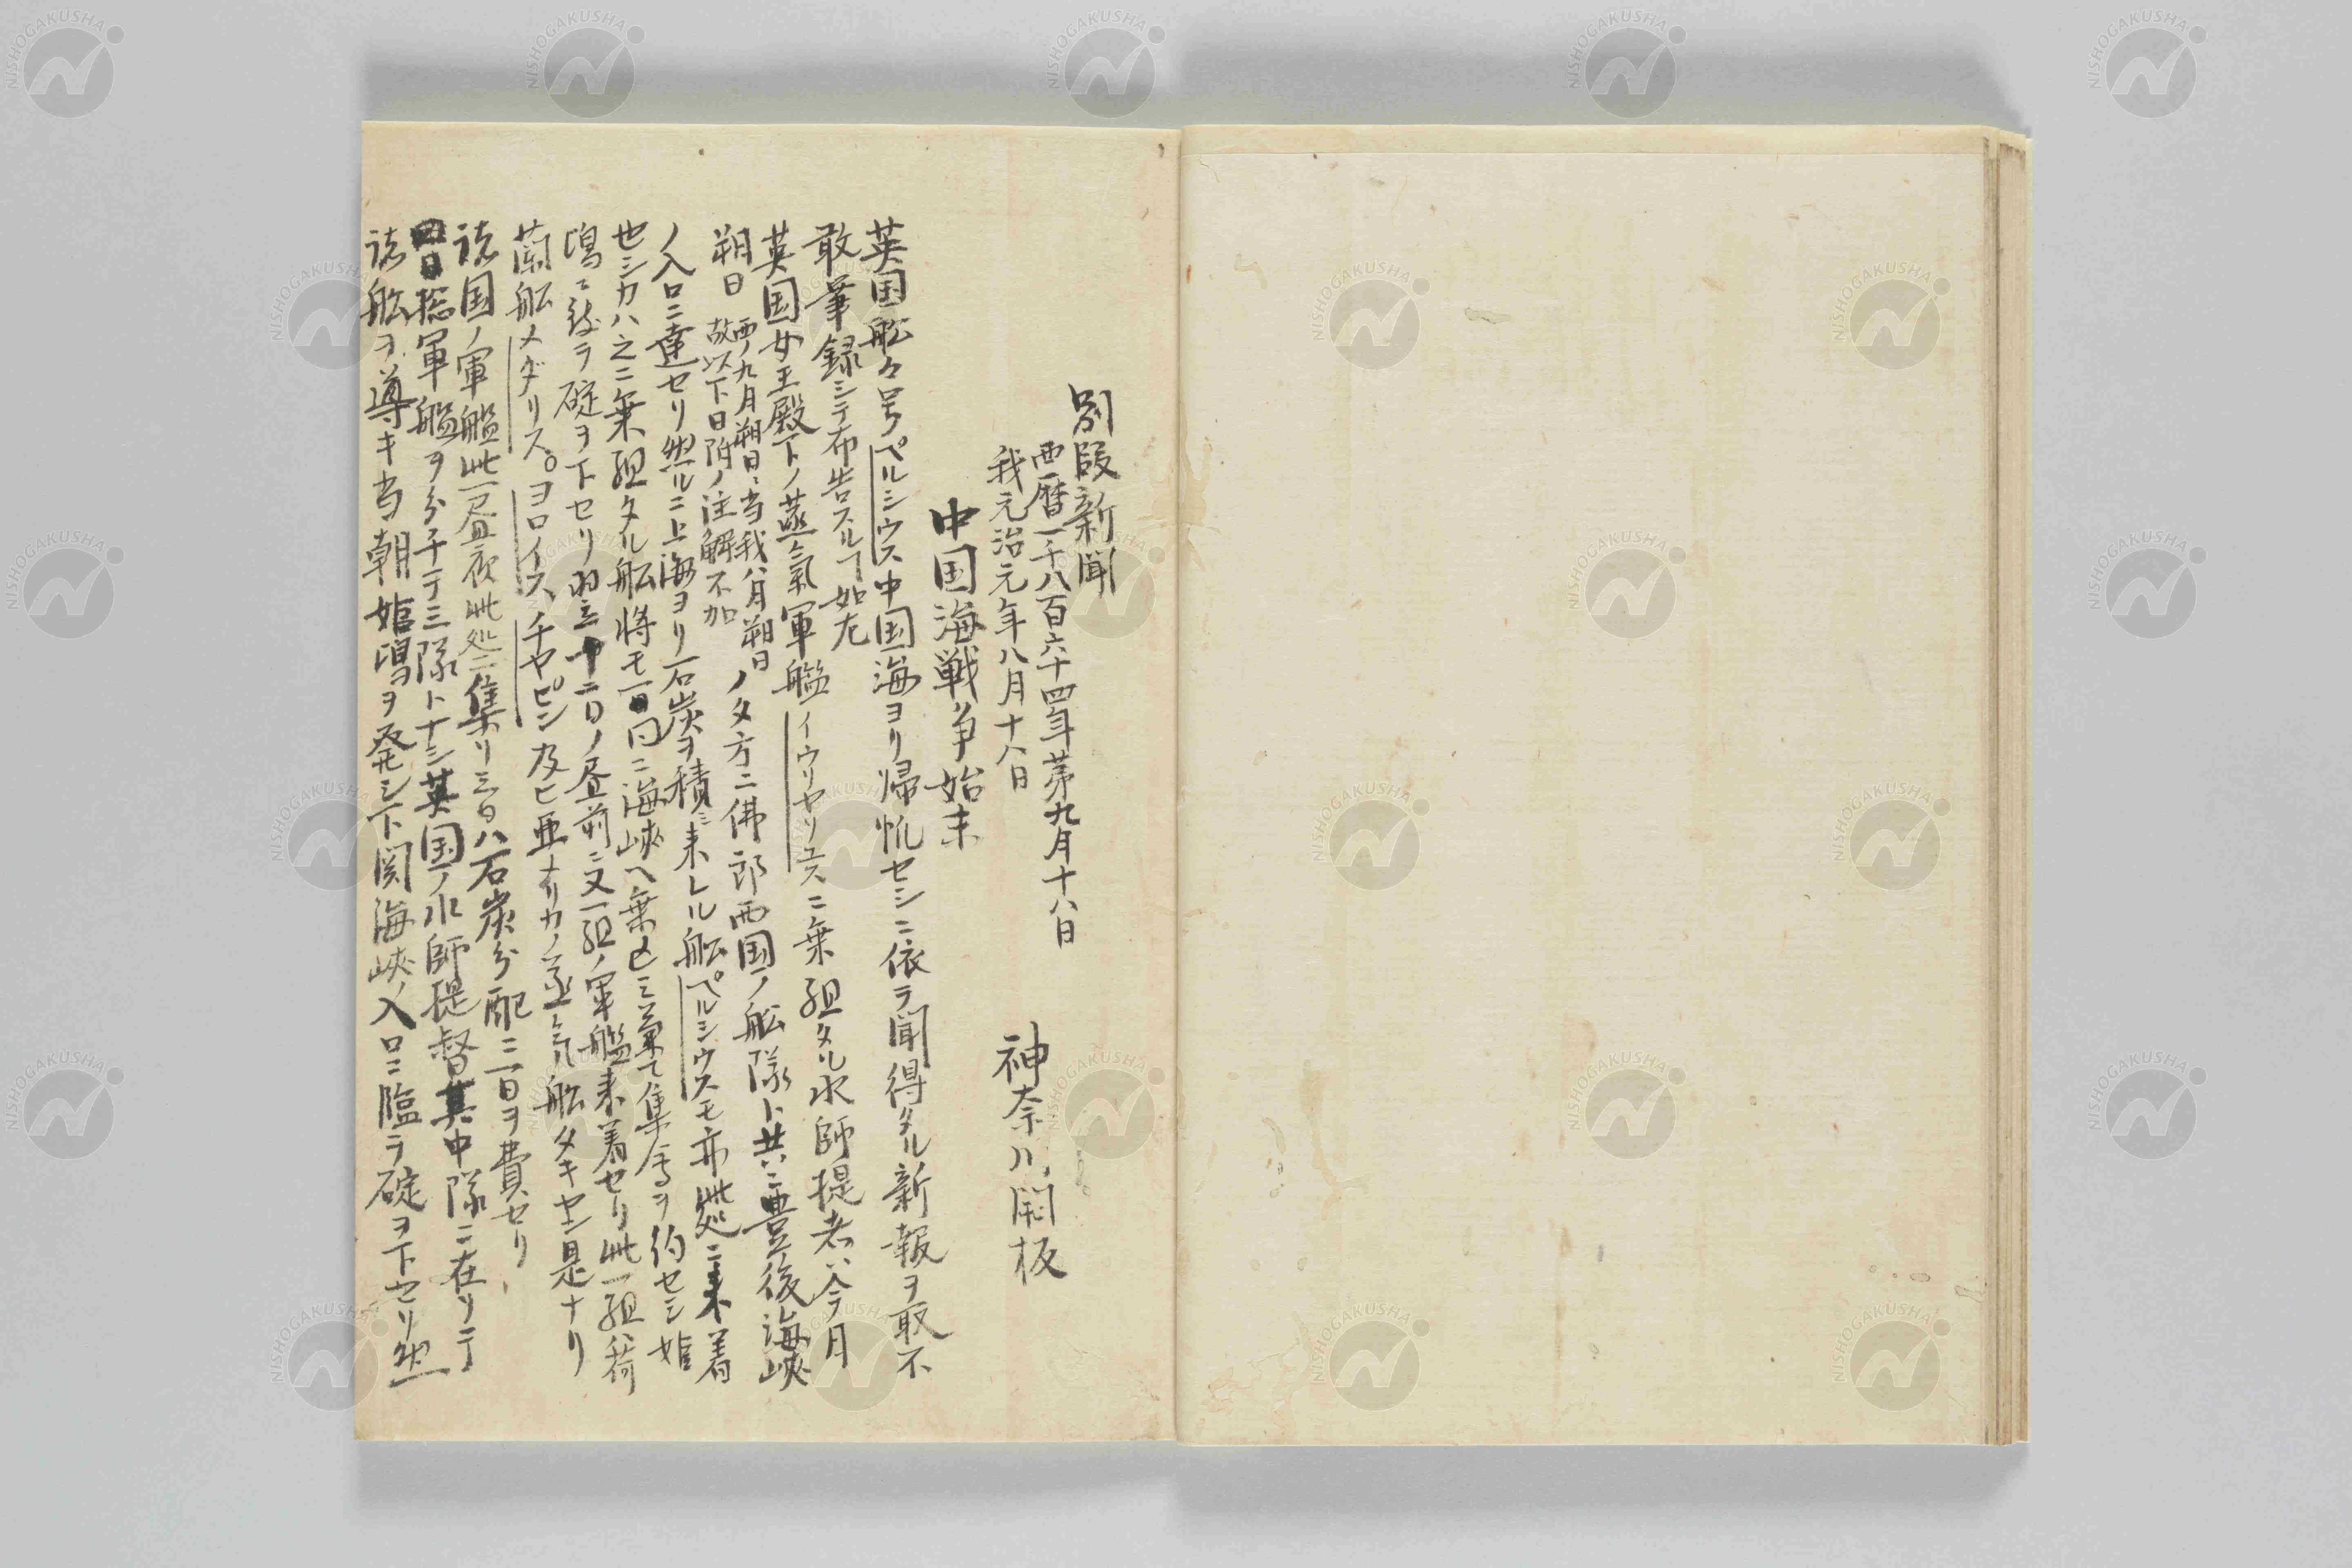 別段新聞
西暦一千八百六十四年第九月十八日
我元治元年八月十八日
神奈川開板
中国海戦争始末
英国舩名号ペルシウス中国海ヨリ帰帆セシニ依テ聞得タル新報ヲ取不
敢筆録シテ布告スルヿ如左
英国女王殿下ノ蒸氣軍艦イウリヤリュスニ乗組タル水師提者ハ今月
朔日
西ノ九月朔日ハ当我八月朔日
故以下日附ノ注解不加
ノ夕方ニ佛郎西国ノ舩隊ト共ニ豊後海峡
ノ入口ニ達セリ然ルニ上海ヨリ石炭ヲ積ミ来レル舩ペルシウスモ亦此処ニ来着
セシカハ之ニ乗組タル舩将モ一同ニ海峡ヘ乗込ミ兼テ集会ヲ約セシ姫
嶋ニ到テ碇ヲ下セリ翌二日ノ昼前ニ又一組ノ軍艦来着セリ此一組ハ荷
蘭舩メダリス。ヨロイス、チヤピン及ヒ亜メリカノ蒸気舩タキヤン是ナリ
諸国ノ軍艦此一昼夜此処ニ集リ三日ハ石炭分配ニ一日ヲ費セリ
四日総軍艦ヲ分チテ三隊トナシ英国ノ水師提督其中隊ニ在リテ
諸舩ヲ導キ当朝姫嶋ヲ発シ下関海峡ノ入口ニ臨テ碇ヲ下セリ然
NISHOGAKUSHA